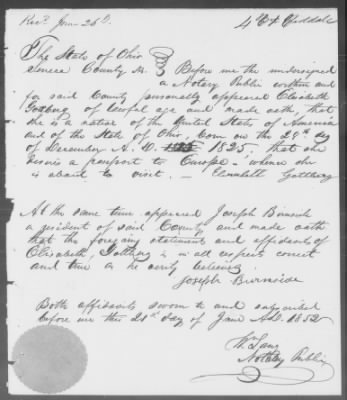 Recd. June 26th
The State of Ohio
Seneca County ss. Before me the undersigned
a Notary Public within and
for said County personally appeared Elizabeth
Gottberg of lawful age and made oath, that
she is a native of the United States of America
and of the State of Ohio, born on the 28th day
of December A. D. 1825, that she
desires a passport to Europe - where she
is about to visit. - Elizabeth Gottberg
At the same time appeared Joseph Burnside
a resident of said County and made oath
that the foregoing statements and affidavits of
Elizabeth Gottberg is in all respects correct
and true as he verily believes
Joseph Burnside
Both affidavits sworn to and subscribed
before me this 21st day of June A.D. 1852
Wm Lang
Notary Public